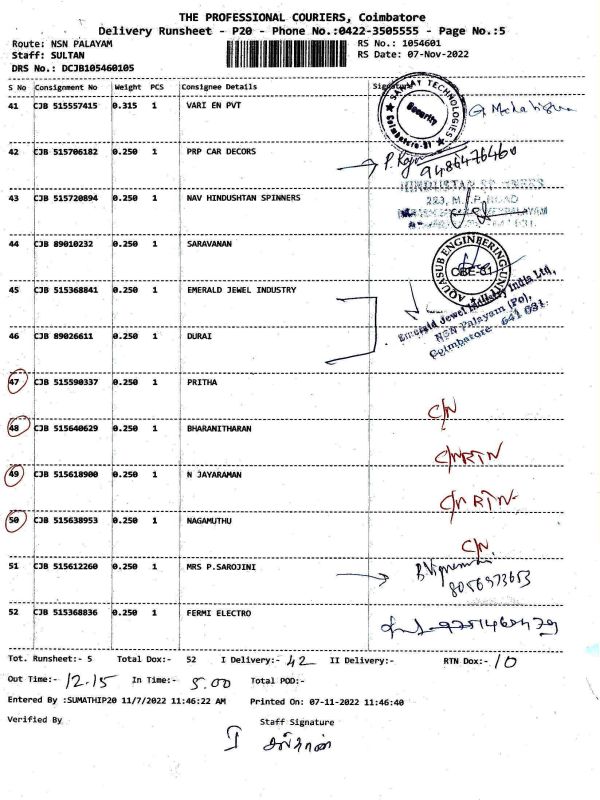 THE PROFESSIONAL COURIERS, Coimbatore
Delivery Runsheet - P20 - Phone No.:0422-3505555 - Page No.:5
Route: NSN PALAYAM RS No.: 1054601
Staff: SULTAN RS Date: 07-Nov-2022
DRS No.: DCJB105460105
S No Consignment No Weight PCS Consignee Details Signature
41 CJB 515557415 0.315 1 VARI EN PVT
SANJAY TECHNOLOGIES Security Coimbatore-31
42 CJB 515706182 0.250 1 PRP CAR DECORS
9486476460
43 CJB 515720894 0.250 1 NAV HINDUSHTAN SPINNERS
HINDUSTAN SPINNERS
283, M.T.P. ROAD
44 CJB 89010232 0.250 1 SARAVANAN
AQUASUB ENGINEERING-UNIT CBE-31
45 CJB 515368841 0.250 1 EMERALD JEWEL INDUSTRY
Emerald Jewel Industry India Ltd,
NSN Palayam (Po),
Coimbatore 641 031.
46 CJB 89026611 0.250 1 DURAI
47 CJB 515590337 0.250 1 PRITHA
C/N
48 CJB 515640629 0.250 1 BHARANITHARAN
C/N RTN
49 CJB 515618900 0.250 1 N JAYARAMAN
C/N RTN
50 CJB 515638953 0.250 1 NAGAMUTHU
C/N
51 CJB 515612260 0.250 1 MRS P.SAROJINI
8056973653
52 CJB 515368836 0.250 1 FERMI ELECTRO
Tot. Runsheet:- 5 Total Dox:- 52 I Delivery:- 42 II Delivery:- RTN Dox:- 10
Out Time:- 12.15 In Time:- 5.00 Total POD:-
Entered By :SUMATHIP20 11/7/2022 11:46:22 AM Printed On: 07-11-2022 11:46:40
Verified By Staff Signature